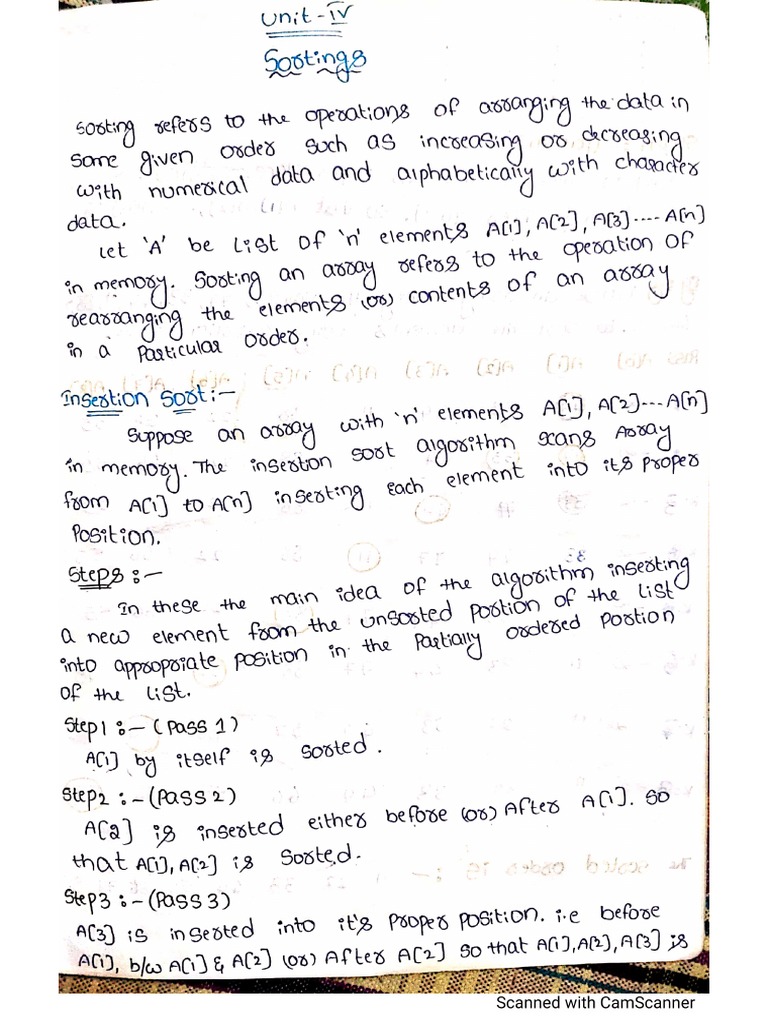 Unit-IV
Sortings
Sorting refers to the operations of arranging the data in
some given order such as increasing or decreasing
with numerical data and alphabetically with character
data.
Let 'A' be List of 'n' elements A[1], A[2], A[3]---- A[n]
in memory. Sorting an array refers to the operation of
rearranging the elements (or) contents of an array
in a particular order.
Insertion Sort:-
Suppose an array with 'n' elements A[1], A[2]--- A[n]
in memory. The insertion sort algorithm scans Array
from A[1] to A[n] inserting each element into its proper
position.
Steps :-
In these the main idea of the algorithm inserting
a new element from the unsorted portion of the list
into appropriate position in the partially ordered portion
of the list.
Step1 :- (Pass 1)
A[1] by itself is sorted.
Step2 :- (Pass 2)
A[2] is inserted either before (or) After A[1]. so
that A[1], A[2] is sorted.
Step3 :- (Pass 3)
A[3] is inserted into it's proper position. i.e before
A[1], b/w A[1] & A[2] (or) After A[2] so that A[1], A[2], A[3] is
Scanned with CamScanner